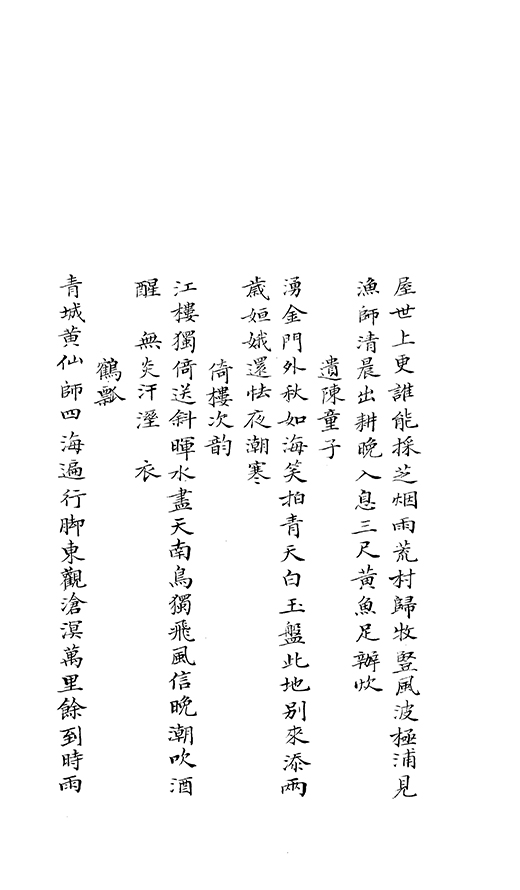 屋世上更誰能採芝烟雨荒村歸牧豎風波極浦見
漁師清晨出耕晚入息三尺黃魚足辦炊
遺陳童子
湧金門外秋如海笑拍青天白玉盤此地別來添兩
歲姮娥還怯夜潮寒
倚樓次韵
江樓獨倚送斜暉水盡天南鳥獨飛風信晚潮吹酒
醒 無炎汗溼 衣
鶴瓢
青城黃仙師四海遍行脚東觀滄溟萬里餘到時雨